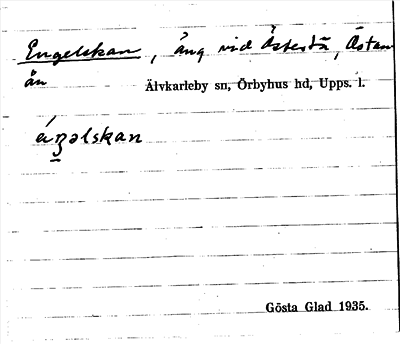 Engelskan, äng vid Österta, Östan
ån Älvkarleby sn, Örbyhus hd, Upps. l.
áŋəlskan
Gösta Glad 1935.